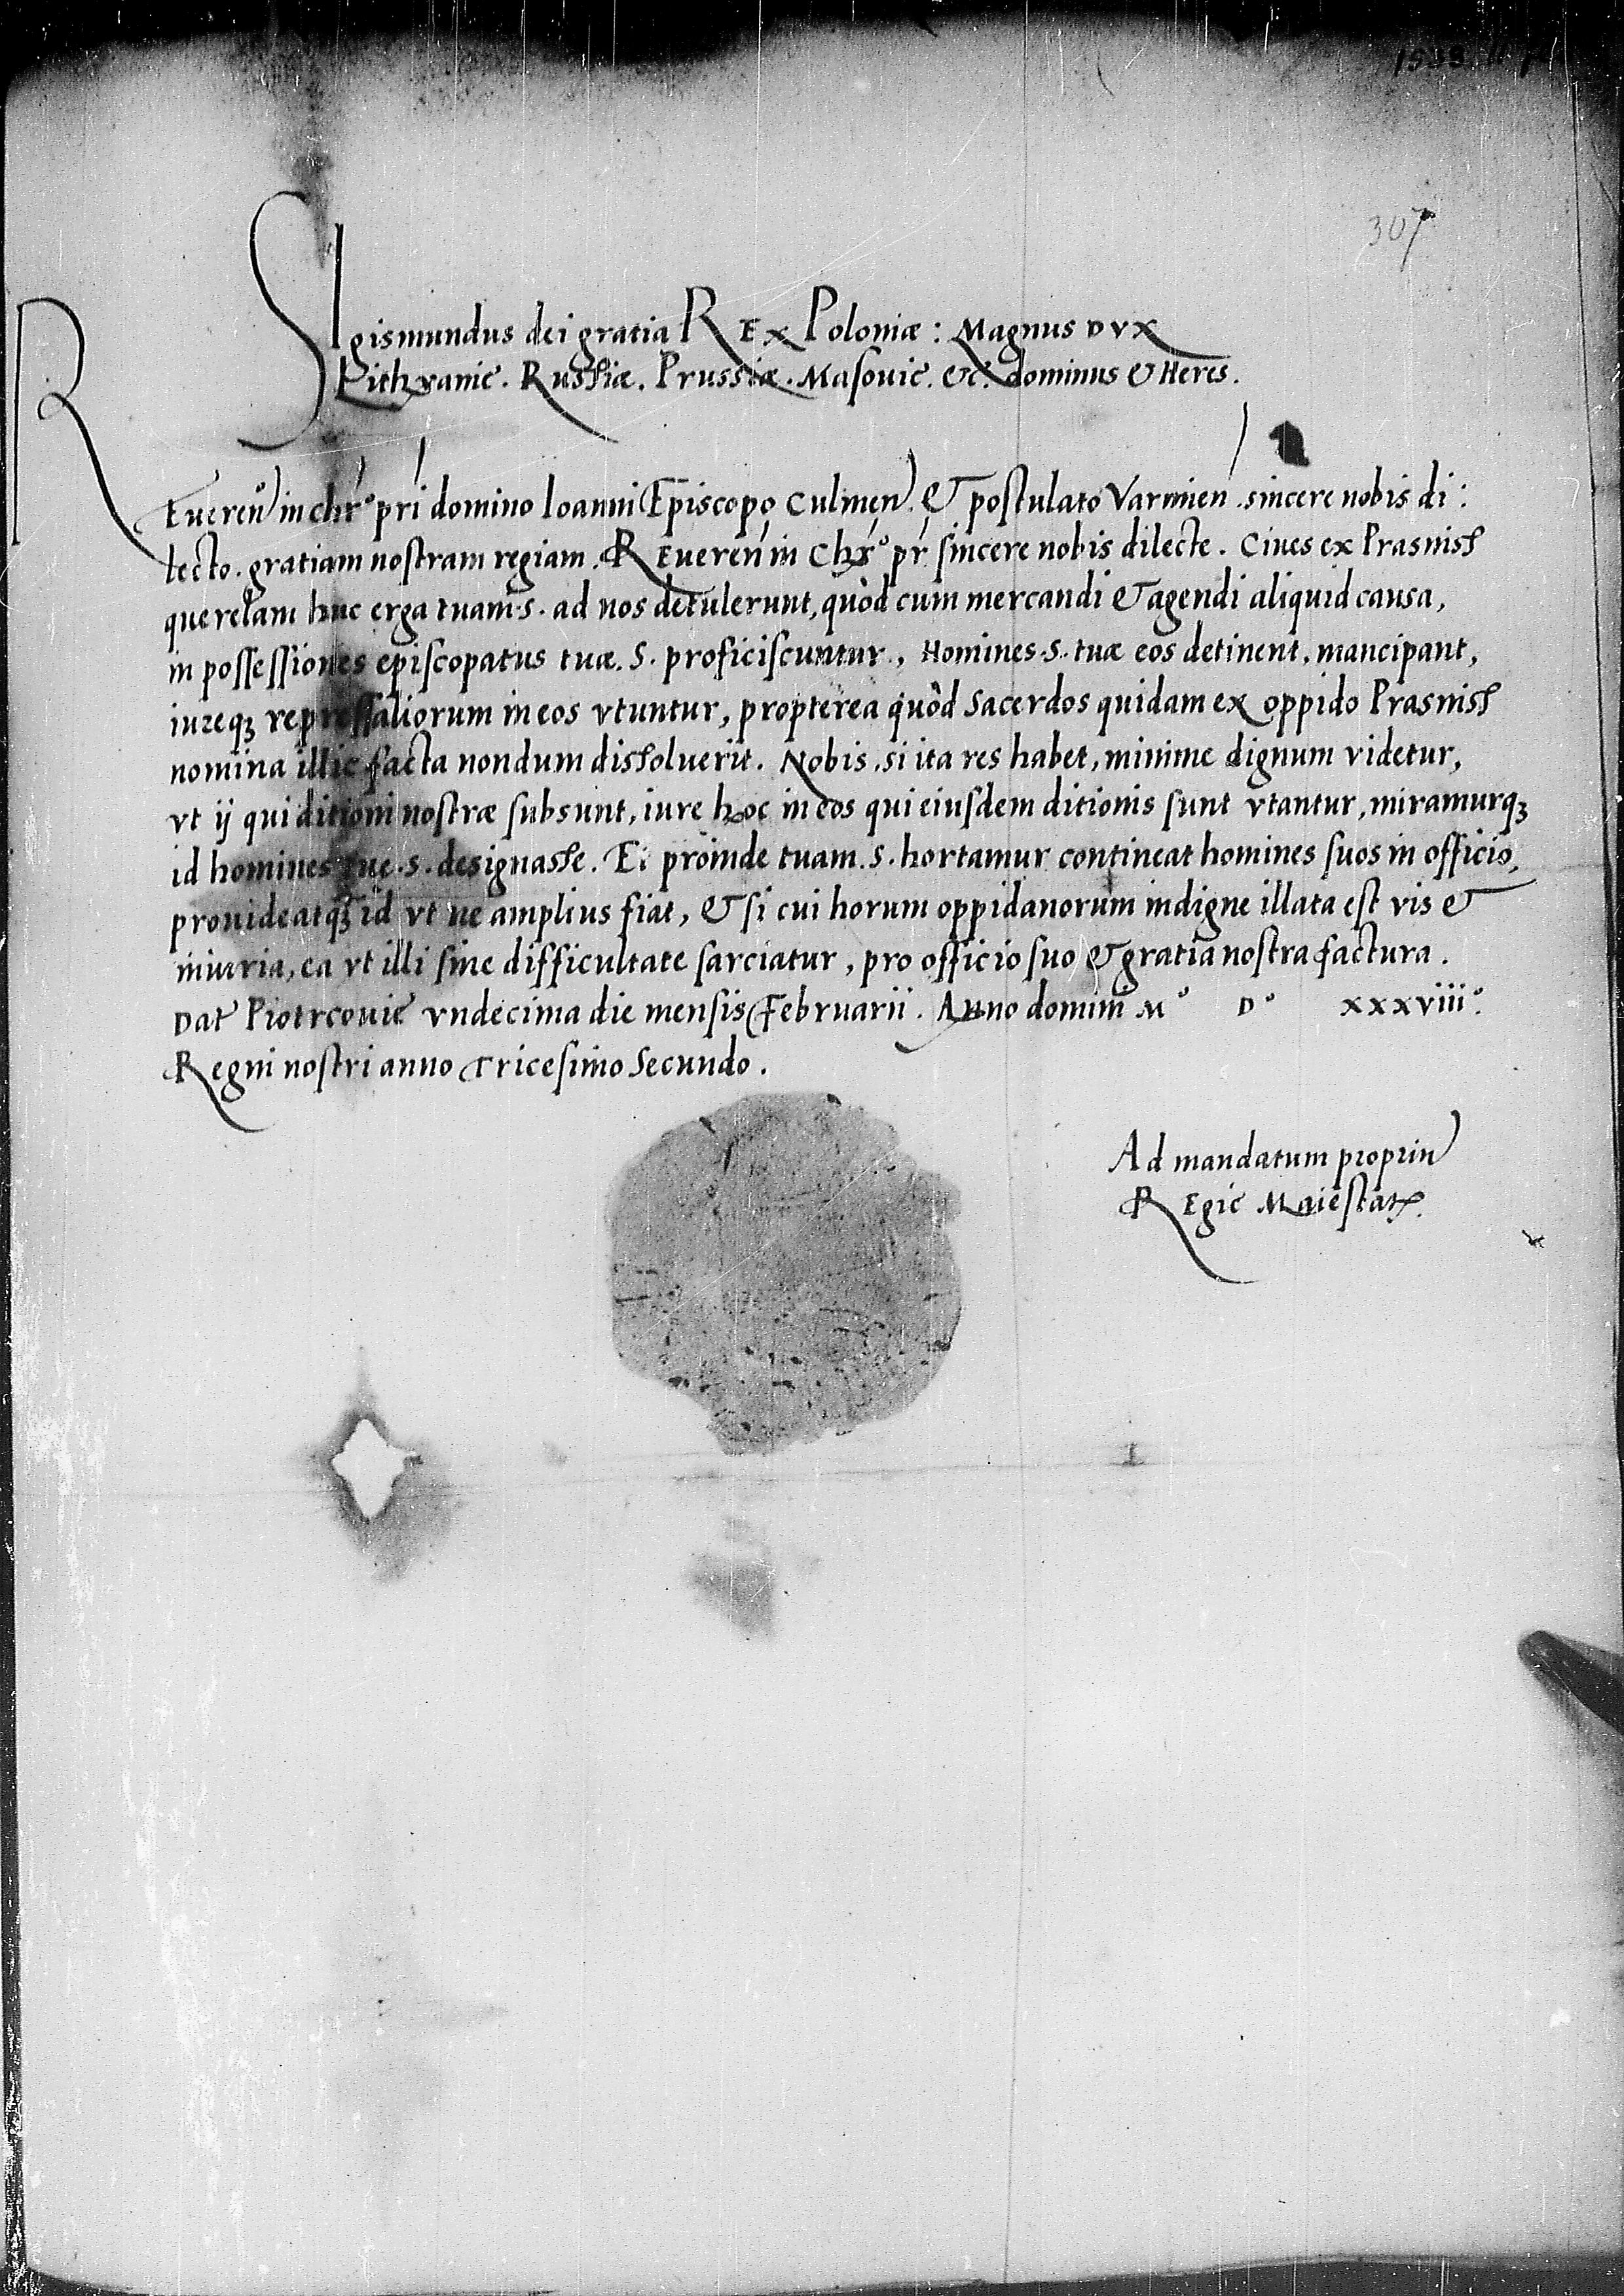 307
SIgismundus dei gratia REx Poloniæ: Magnus DVX
Lithvanię. Russiæ. Prussiæ. Masouię. &c. dominus & Heres.
REueren in chro pri domino Ioanni Episcopo Culmen. & postulato Varmien. sincere nobis di:
lecto. gratiam nostram regiam. REueren in Chro pr sincere nobis dilecte. Ciues ex Prasnish
querelam huc erga tuam. s. ad nos detulerunt, quòd cum mercandi & agendi aliquid causa,
in possessiones episcopatus tuæ. S. proficiscuntur, Homines. s. tuæ eos detinent, mancipant,
iureqꝫ repressaliorum in eos vtuntur, propterea quòd Sacerdos quidam ex oppido Prasnish
nomina illic facta nondum dissoluerit. Nobis, si ita res habet, minime dignum videtur,
vt ij qui ditioni nostræ subsunt, iure hoc in eos qui eiusdem ditionis sunt vtantur, miramurqꝫ
id homines tue. s. designasse. Ei proinde tuam. s. hortamur contineat homines suos in officio,
prouideatqꝫ id vt ne amplius fiat, & si cui horum oppidanorum indigne illata est vis &
iniuria, ea vt illi sine difficultate sarciatur, pro officio suo & gratia nostra factura.
Dat Piotrcouię vndecima die mensis Februarii. Anno domini Mº Dº xxxviiiº.
Regni nostri anno Tricesimo Secundo.
Ad mandatum propriu
REgię Maiestatꝭ.